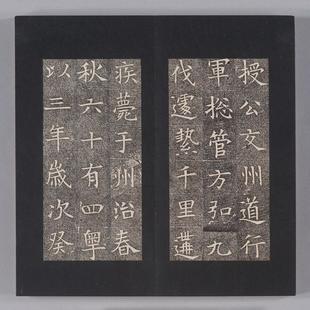 授公文州道行
軍総管方弘九
伐遽縶千里遘
疾薨于州治春
秋六十有四粤
以三年歲次癸